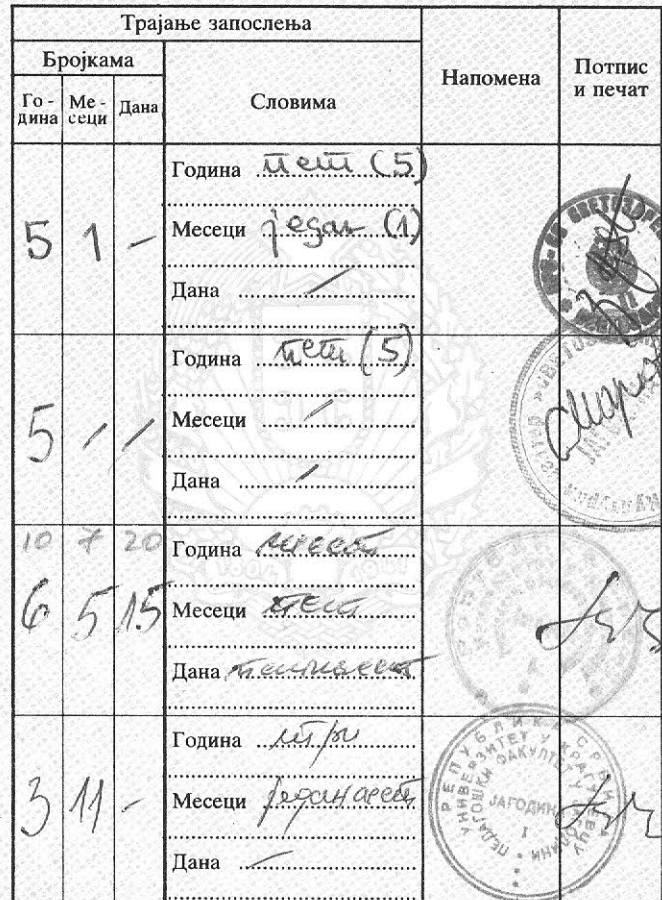 Трајање запослења
Бројкама
Словима
Напомена
Потпис и печат
Го-дина
Ме-сеци
Дана
5 1 –
Година пет (5)
Месеци један (1)
Дана /
5 / /
Година пет (5)
Месеци /
Дана /
10 7 20
6 5 15
Година шест
Месеци пет
Дана петнаест
3 11 -
Година три
Месеци једанаест
Дана –
РЕПУБЛИКА СРБИЈА
УНИВЕРЗИТЕТ У КРАГУЈЕВЦУ
ПЕДАГОШКИ ФАКУЛТЕТ У ЈАГОДИНИ
ЈАГОДИНА
I